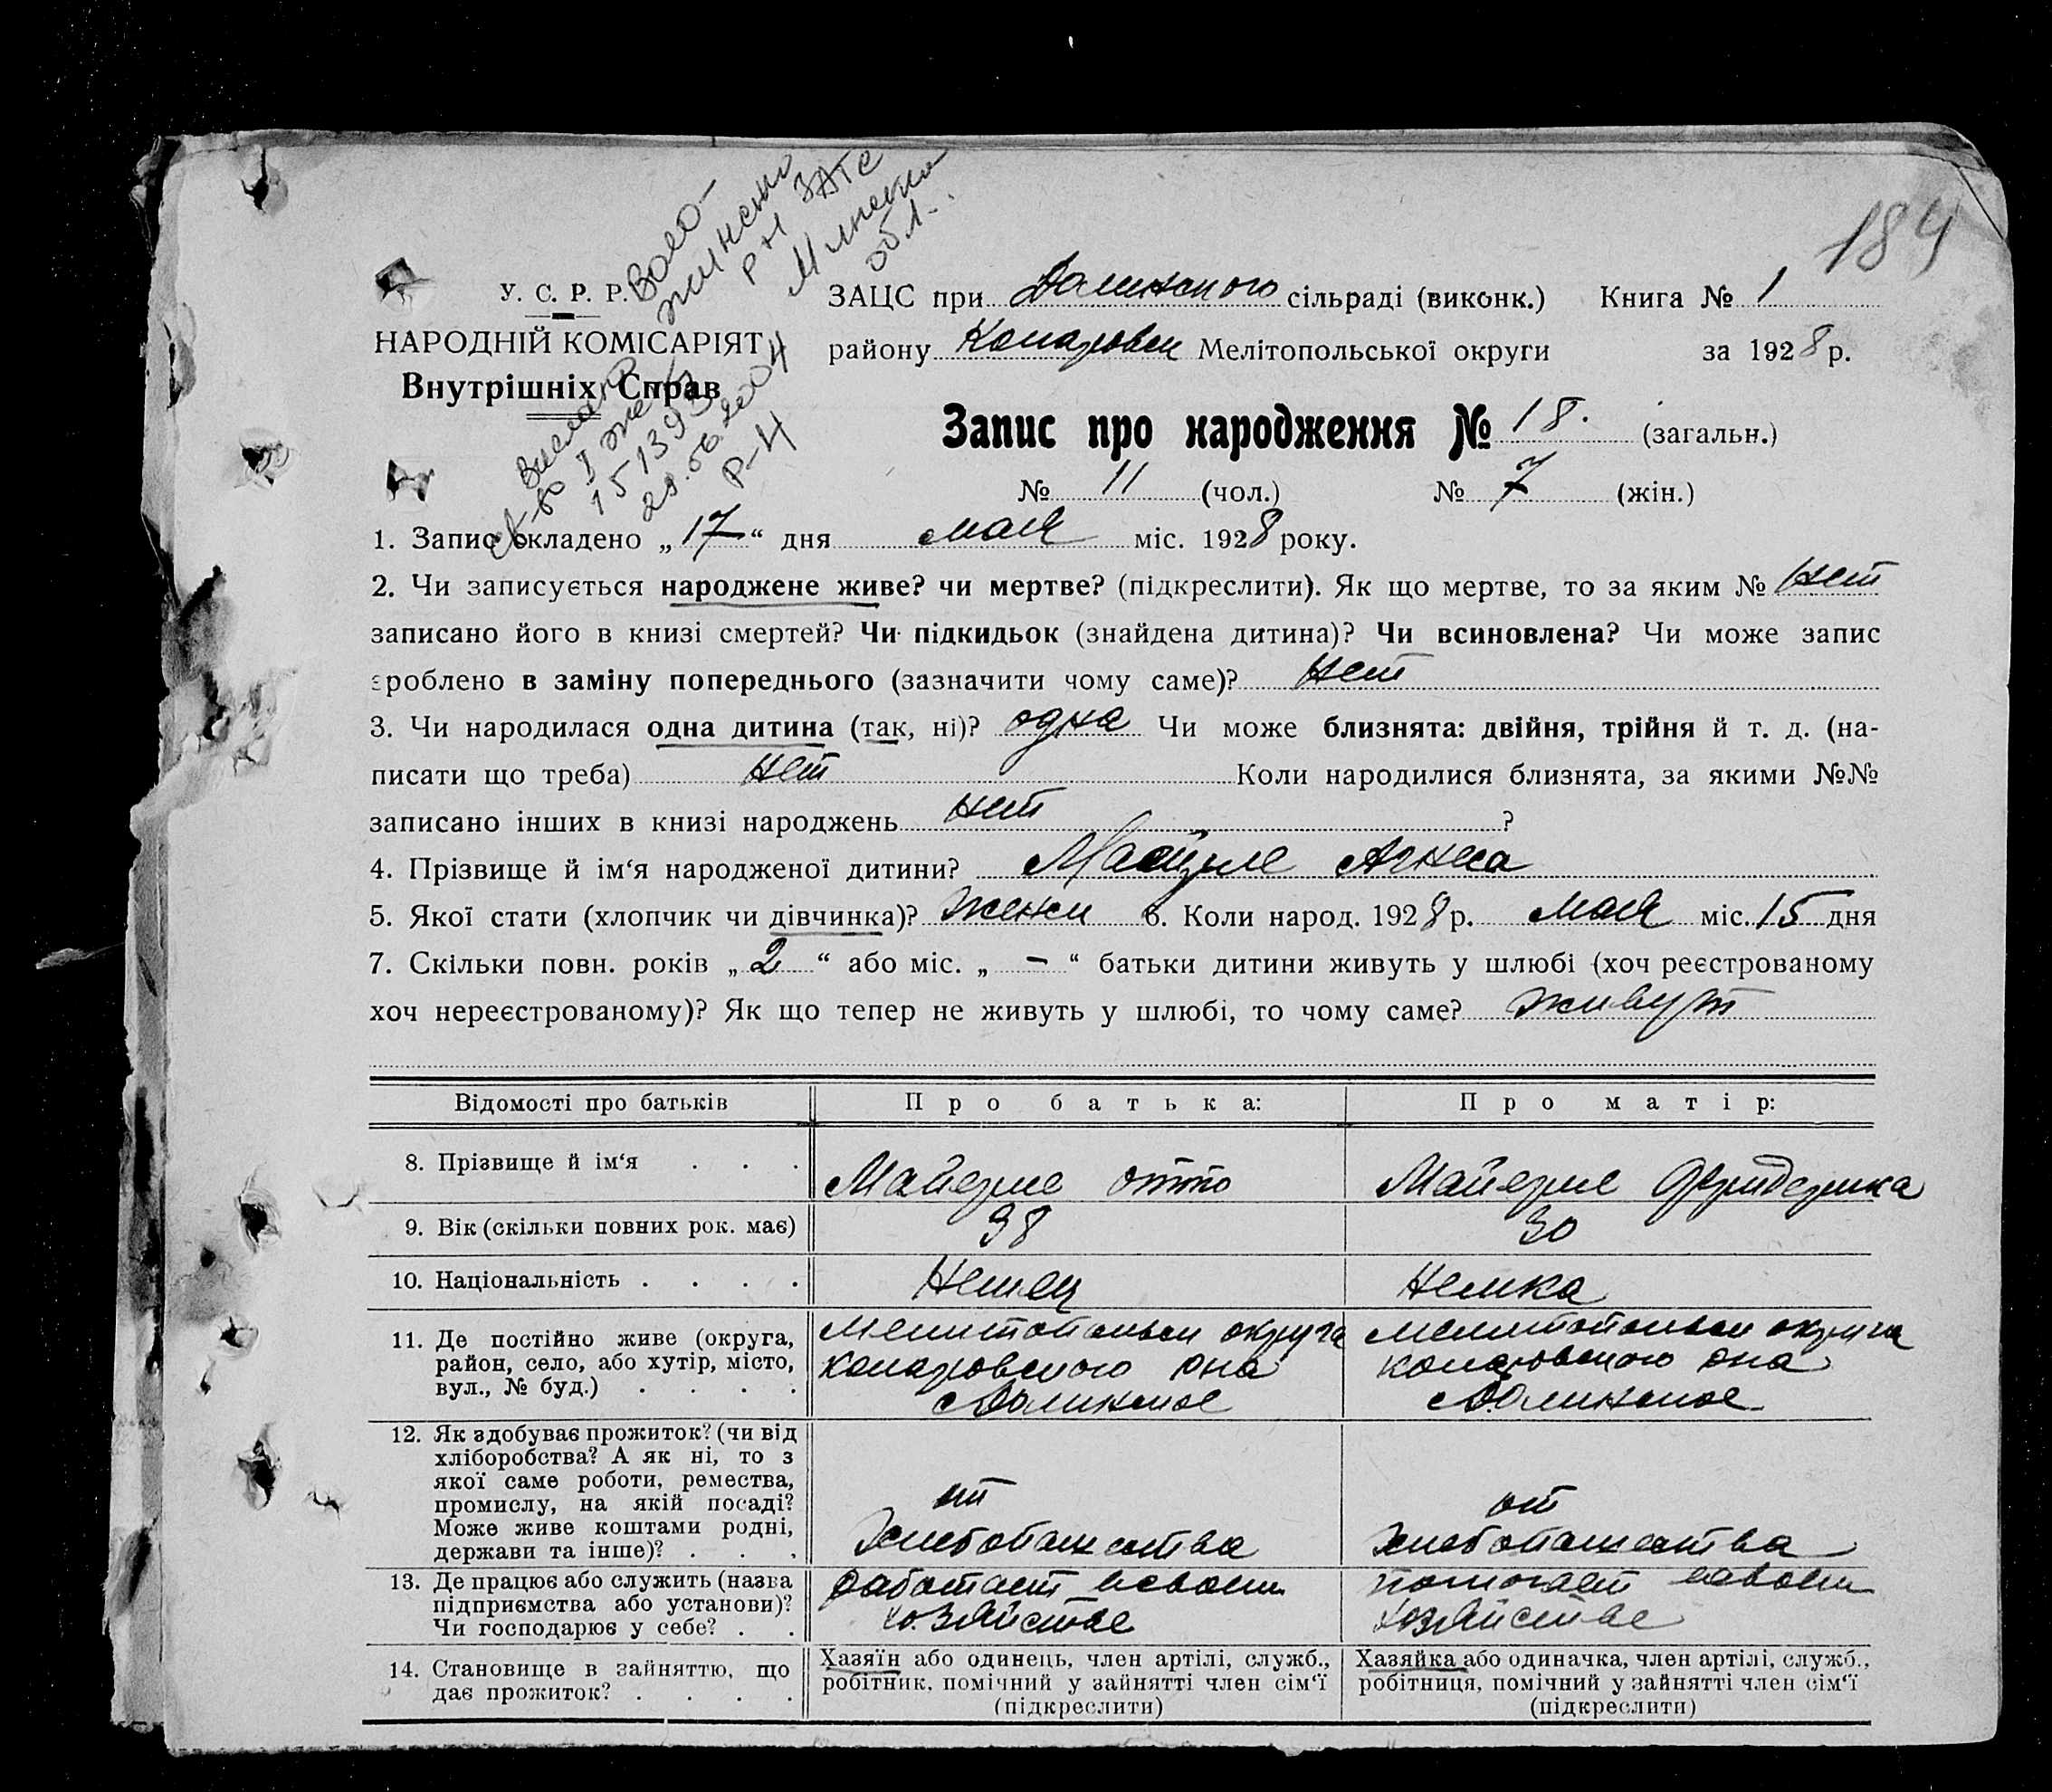 184
Воло-
жинско
рн ЗАГС
Минской
обл.
У. С. Р. Р.
НАРОДНІЙ КОМІСАРІЯТ
Внутрішніх Справ
29.06.2004
Р-Н
ЗАЦС при Долинского сільраді (виконк.) Книга № 1
району Комаровск Мелітопольської округи за 1928 р.
Запис про народження № 18. (загальн.)
№ 11 (чол.) № 7 (жін.)
1. Запис складено „17“ дня мая міс. 1928 року.
2. Чи записується народжене живе? чи мертве? (підкреслити). Як що мертве, то за яким № нет
записано його в книзі смертей? Чи підкидьок (знайдена дитина)? Чи всиновлена? Чи може запис
зроблено в заміну попереднього (зазначити чому саме)? нет
3. Чи народилася одна дитина (так, ні)? одна Чи може близнята: двійня, трійня й т. д. (на-
писати що треба) нет Коли народилися близнята, за якими №№
записано інших в книзі народжень нет ?
4. Прізвище й ім‘я народженої дитини? Майерле Агнеса
5. Якої стати (хлопчик чи дівчинка)? женск 6. Коли народ. 1928 р. мая міс. 15 дня
7. Скільки повн. років „2“ або міс. „-“ батьки дитини живуть у шлюбі (хоч реєстрованому
хоч нереєстрованому)? Як що тепер не живуть у шлюбі, то чому саме? живут
Відомості про батьків Про батька: Про матір:
8. Прізвище й ім‘я . . . Майерле отто Майерле Фридерика
9. Вік (скільки повних рок. має) 38 30
10. Національність . . . . Немец Немка
11. Де постійно живе (округа,
район, село, або хутір, місто,
вул., № буд.) . . . .
Мелитопольск округа
комаровского рна
с Долинское
мелитопольск округа
комаровского рна
с Долинское
12. Як здобуває прожиток? (чи від
хліборобства? А як ні, то з
якої саме роботи, ремества,
промислу, на якій посаді?
Може живе коштами родні,
держави та інше)? . . .
от
Хлебопашества
от
Хлебопашества
13. Де працює або служить (назва
підприємства або установи)?
Чи господарює у себе? . .
работает всвоем
хозяйстве
помогает всвоем
хозяйстве
14. Становище в зайняттю, що
дає прожиток? . . . .
Хазяїн або одинець, член артілі, служб.,
робітник, помічний у зайнятті член сім‘ї
(підкреслити)
Хазяйка або одиначка, член артілі, служб.,
робітниця, помічний у зайнятті член сім‘ї
(підкреслити)